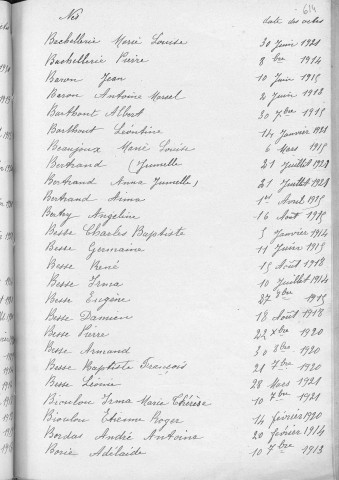 614
Nés date des actes
Bachellerie Marie Louise 30 Juin 1921
Bachellerie Pierre 8bre 1914
Baron Jean 10 Juin 1915
Baron Antoine Marcel 2 Juin 1918
Barthout Albert 30 7bre 1915
Barthout Léontine 14 Janvier 1921
Beaujoux Marie Louise 6 Mars 1915
Bertrand (Jumelle) 21 Juillet 1921
Bertrand Anna Jumelle) 21 Juillet 1921
Bertrand Anna 1er Avril 1915
Betry Angeline 16 Août 1915
Besse Charles Baptiste 5 Janvier 1914
Besse Germaine 11 Juin 1915
Besse René 15 Août 1918
Besse Irma 10 Juillet 1914
Besse Eugène 27 8bre 1915
Besse Damien 18 Août 1918
Besse Pierre 22 xbre 1920
Besse Armand 30 8bre 1920
Besse Baptiste François 21 7bre 1920
Besse Léonie 28 Mars 1921
Bioulou Irma Marie Thérèse 10 7bre 1921
Bioulou Etienne Roger 14 février 1920
Bordas André Antoine 20 février 1914
Borie Adélaïde 10 7bre 1913